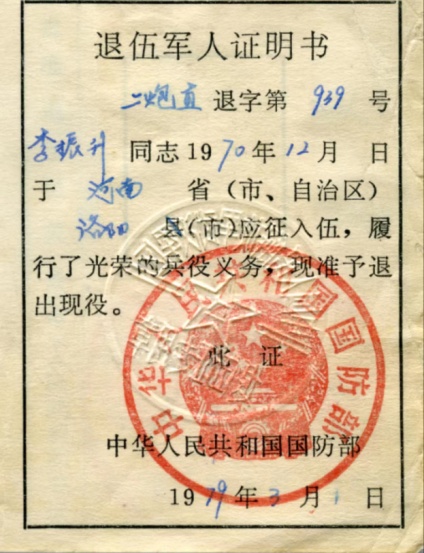 退伍军人证明书
二炮直 退字第 939 号
李振升 同志1970年12月 日
于 河南 省(市、自治区)
洛阳 县(市)应征入伍,履
行了光荣的兵役义务,现准予退
出现役。
此证
中华人民共和国国防部
中华人民共和国国防部
1979年3月1日